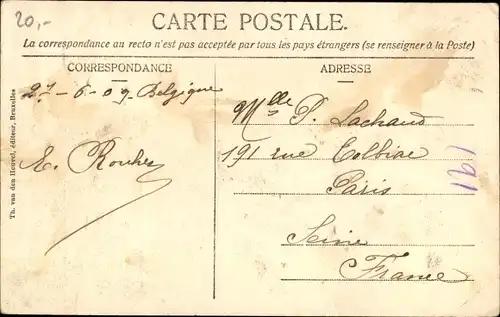 20,-
CARTE POSTALE.
La correspondance au recto n'est pas acceptée par tous les pays étrangers (se renseigner à la Poste)
CORRESPONDANCE
ADRESSE
27-6-09 Belgique
E. Rouher
Mlle P. Lachaud
191 rue Tolbiac
Paris
Seine
France
191
Th. van den Heuvel, éditeur, Bruxelles